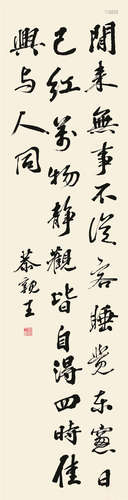 閒来無事不從容睡覺东窗日
已红萬物静觀皆自得四時佳
興与人同
恭親王